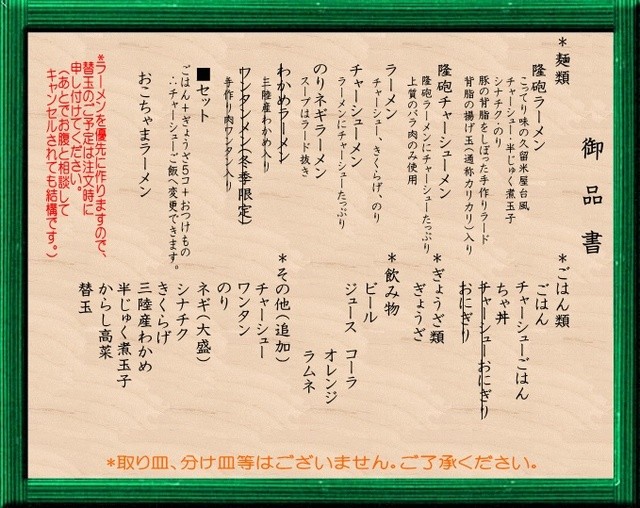 御品書
*麺類
隆砲ラーメン
こってり味の久留米屋台風
チャーシュー・半じゅく煮玉子
シナチク・のり
豚の背脂をしぼった手作りラード
背脂の揚げ玉(通称カリカリ)入り
隆砲チャーシューメン
隆砲ラーメンにチャーシューたっぷり
上質のバラ肉のみ使用
ラーメン
チャーシュー、きくらげ、のり
チャーシューメン
ラーメンにチャーシューたっぷり
のりネギラーメン
スープはラード抜き
わかめラーメン
三陸産わかめ入り
ワンタンメン(冬季限定)
手作り肉ワンタン入り
■セット
ごはん+ぎょうざ5コ+おつけもの
∴チャーシューご飯へ変更できます。
おこちゃまラーメン
*ラーメンを優先に作りますので、
替玉のご予定は注文時に
申し付けてください。
(あとでお腹と相談して
キャンセルされても結構です。)
*ごはん類
ごはん
チャーシューごはん
ちゃ丼
チャーシューおにぎり
おにぎり
*ぎょうざ類
ぎょうざ
*飲み物
ビール
ジュース コーラ
オレンジ
ラムネ
*その他(追加)
チャーシュー
ワンタン
のり
ネギ(大盛)
シナチク
きくらげ
三陸産わかめ
半じゅく煮玉子
からし高菜
替玉
*取り皿、分け皿等はございません。ご了承ください。